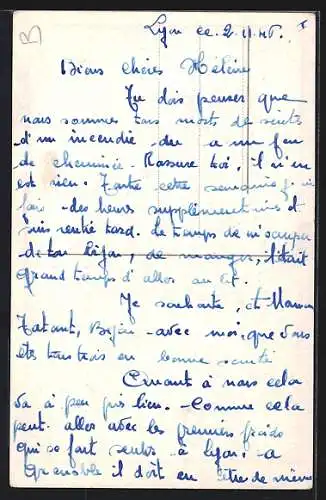 Lyon ce. 2.11.46.
Biens chères Hélène
Tu dois penser que
nous sommes tous morts de suite
d'un incendie - due à un feu
de cheminée. Rassure toi. Il n'en
est rien. Toute cette semaine j'ai
fait - des heures supplémentaires et
suis rentré tard. Le temps de m'occuper
de ton Léjon, de manger, c'était
grand temps d'aller au lit.
Je souhaite, et Maman
Tatant, - avec moi, que vous
êtes tous trois en bonne santé
Quant à nous cela
va à peu près bien. - Comme cela
peut - aller avec les premiers froids
qui se font sentir - à Lyon. - a
Grenoble il doit en être de même